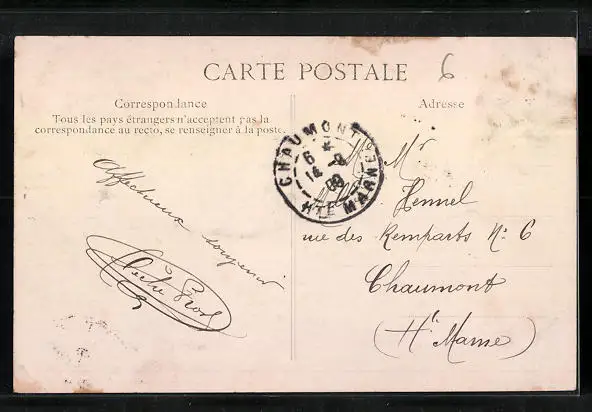 CARTE POSTALE
6
Correspondance
Tous les pays étrangers n'acceptent pas la
correspondance au recto, se renseigner à la poste.
Adresse
CHAUMONT
6 *
14 -9
09
HTE MARNE
Affectueux souvenir
Mr
Hennel
rue des Remparts No: 6
Chaumont
(Hte Marne)